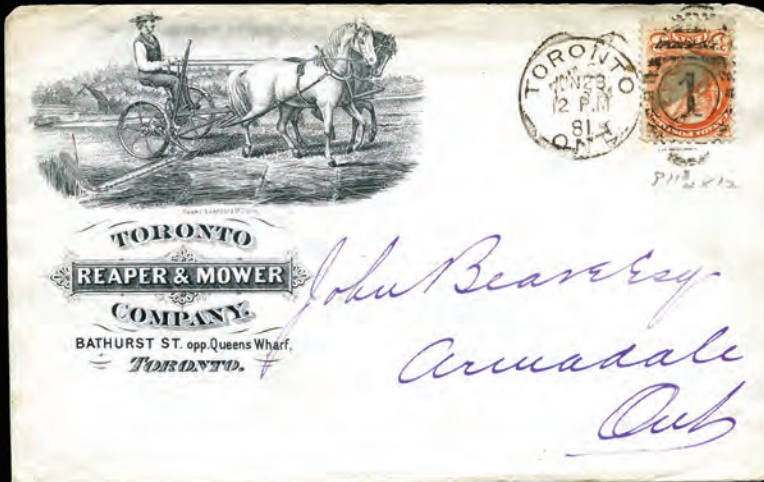 TORONTO
JUN 28
12 PM
81
ONT.
1
TORONTO
REAPER & MOWER
COMPANY.
BATHURST ST. opp. Queens Wharf,
TORONTO.
John Beave Esq
Armadale
Ont